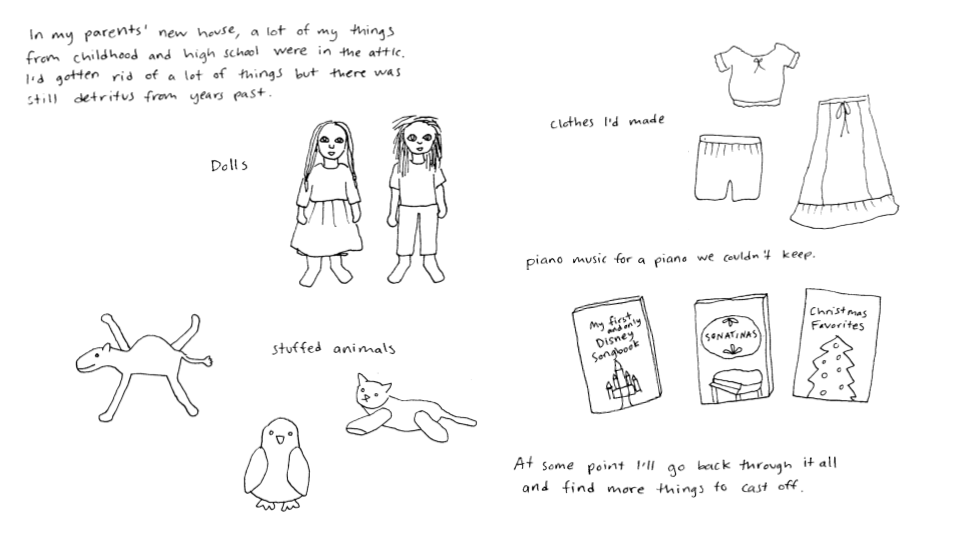 In my parents' new house, a lot of my things
from childhood and high school were in the attic.
I'd gotten rid of a lot of things but there was
still detritus from years past.
Dolls
stuffed animals
clothes I'd made
piano music for a piano we couldn't keep.
My first
and only
Disney
Songbook
SONATINAS
Christmas
Favorites
At some point I'll go back through it all
and find more things to cast off.